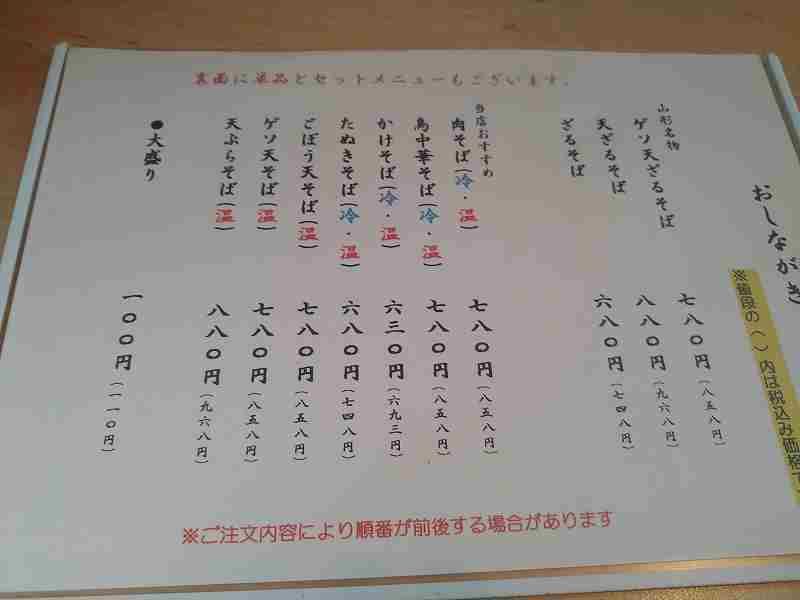 おしながき
※普段の( )内は税込み価格で
山形名物
ゲソ天ざるそば 七八〇円(八五八円)
天ざるそば 八八〇円(九六八円)
ざるそば 六八〇円(七四八円)
当店おすすめ
肉そば(冷・温) 七八〇円(八五八円)
鳥中華そば(冷・温) 七八〇円(八五八円)
かけそば(冷・温) 六三〇円(六九三円)
たぬきそば(冷・温) 六八〇円(七四八円)
ごぼう天そば(温) 七八〇円(八五八円)
ゲソ天そば(温) 七八〇円(八五八円)
天ぷらそば(温) 八八〇円(九六八円)
●大盛り 一〇〇円(一一〇円)
裏面に単品とセットメニューもございます。
※ご注文内容により順番が前後する場合があります